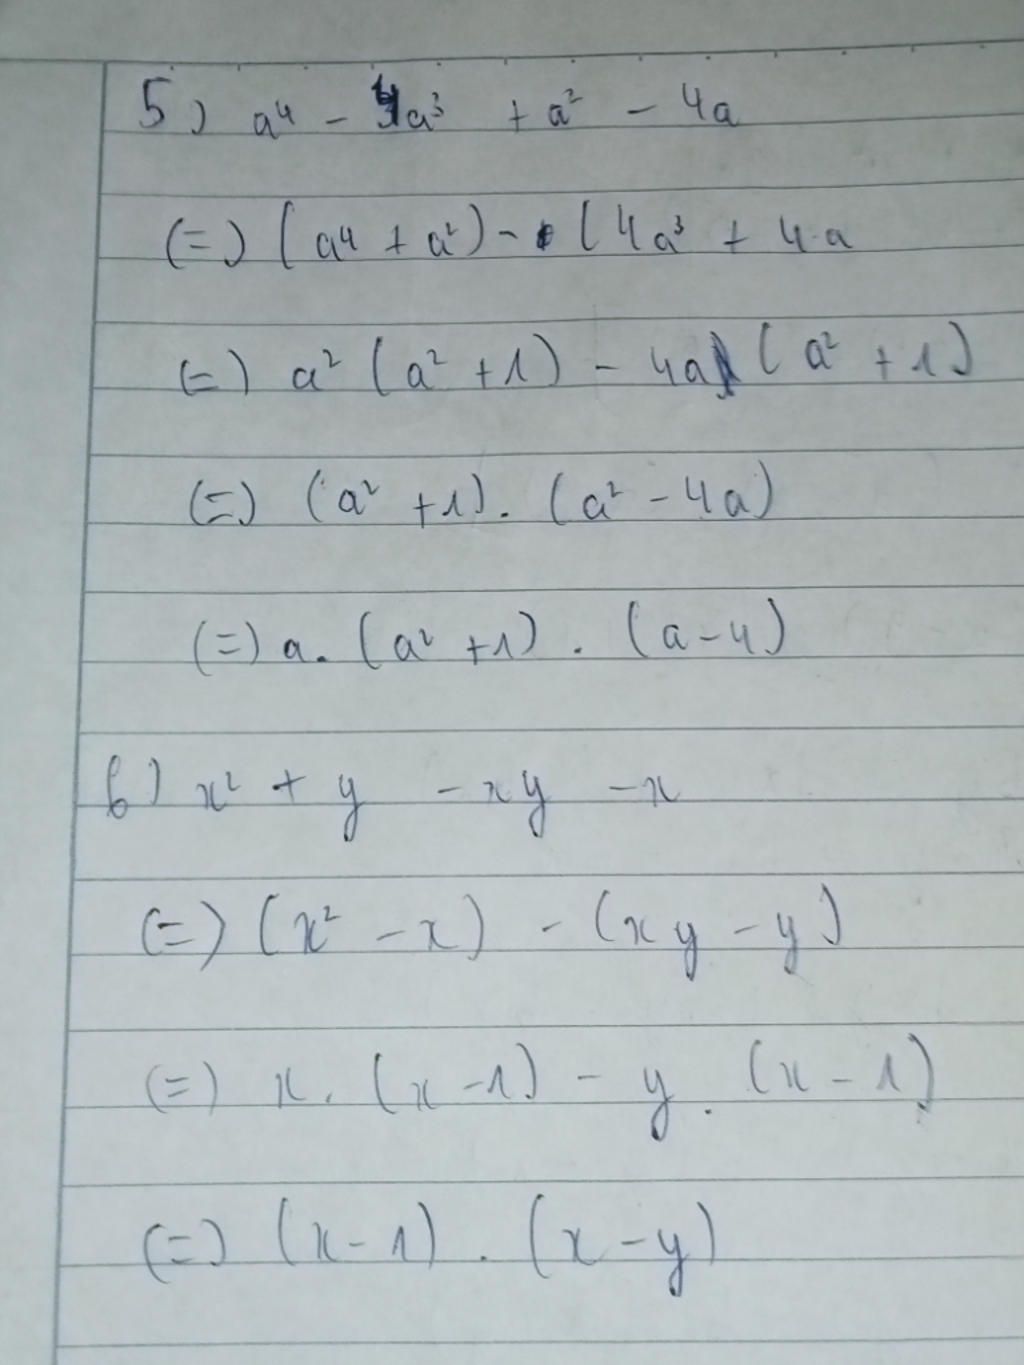 5) a⁴ - 4a³ + a² - 4a
(=) (a⁴ + a²) - (4a³ + 4a
(=) a² (a² + 1) - 4a (a² + 1)
(=) (a² + 1) . (a² - 4a)
(=) a . (a² + 1) . (a - 4)
6) x² + y - xy - x
(=) (x² - x) - (xy - y)
(=) x . (x - 1) - y . (x - 1)
(=) (x - 1) . (x - y)